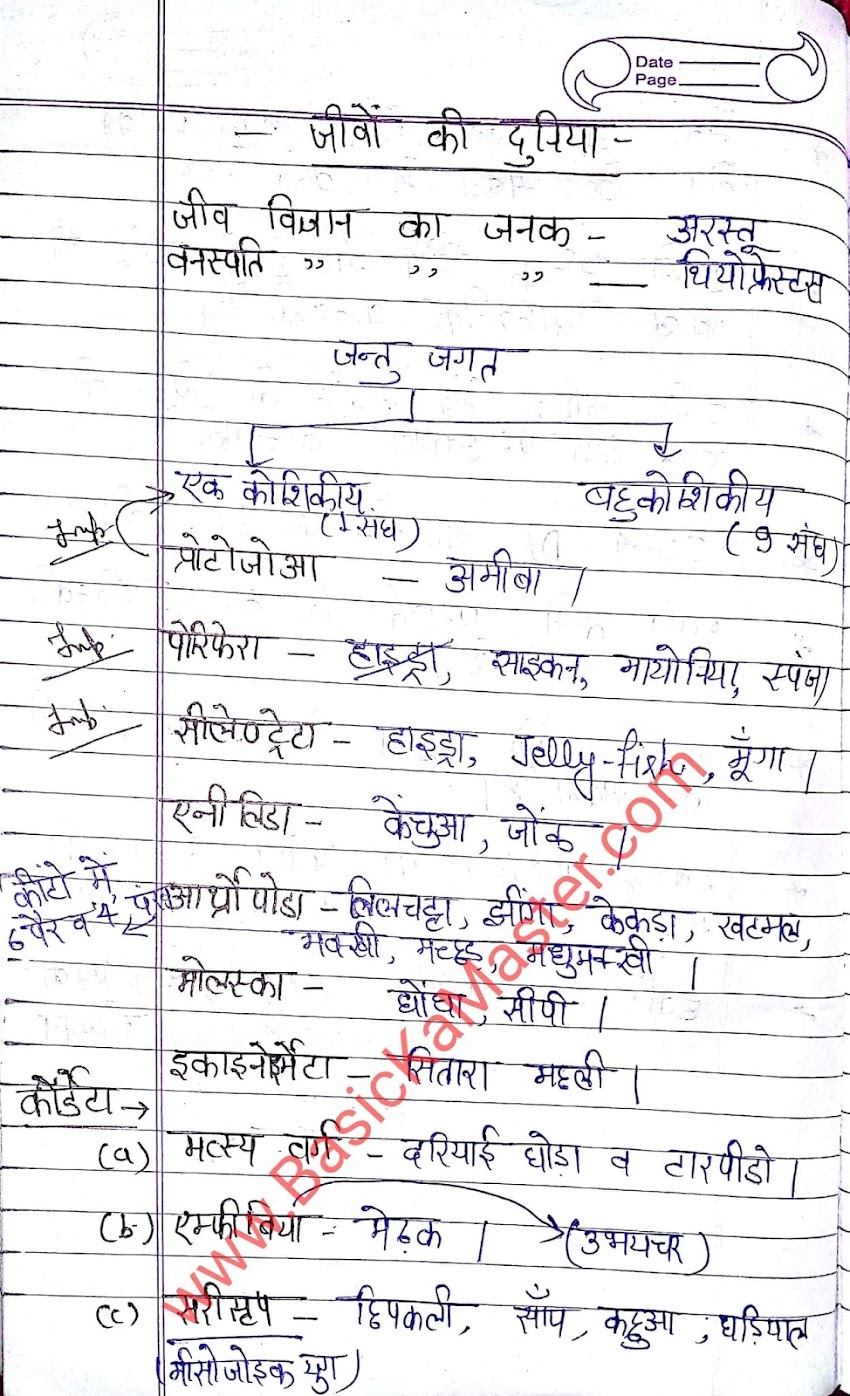 Date
Page
- जीवों की दुनिया -
जीव विज्ञान का जनक - अरस्तू
वनस्पति ,, ,, ,, — थियोफ्रेस्टस
जन्तु जगत
एक कोशिकीय बहुकोशिकीय
(1 संघ) (9 संघ)
Imp.
प्रोटोजोआ — अमीबा ।
Imp. पोरिफेरा - हाइड्रा, साइकन, मायोनिया, स्पंज ।
Imp. सीलेण्ट्रेटा - हाइड्रा, Jelly-fish, मूँगा ।
एनीलिडा - केंचुआ, जोंक ।
कीटो में
6 पैर व 4 पंख
आर्थ्रोपोडा - तिलचट्टा, झींगा, केकड़ा, खटमल,
मक्खी, मच्छड़, मधुमक्खी ।
मोलस्का - घोंघा, सीपी ।
इकाइनोडर्मेटा - सितारा मछली ।
कॉर्डेटा →
(a) मत्स्य वर्ग - दरियाई घोड़ा व टारपीडो ।
(b) एम्फीबिया - मेढ़क । (उभयचर)
(c) सरीसृप - छिपकली, साँप, कछुआ, घड़ियाल
(मीसोजोइक युग)
www.BasicKaMaster.com